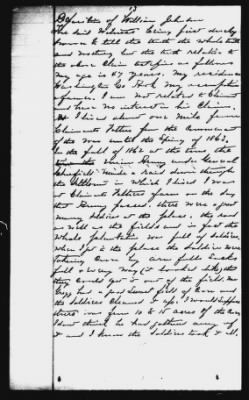 Deposition of William Johnson
The said Witness being first duly
sworn to tell the truth the whole truth
and nothing but the truth relative to
the above Claim testifies as follows
My age is 57 years. My residence
Washington Co Ark My occupation
farmer. I am not related to Claimant
and have no interest in his Claim.
I lived about one mile from
Claimants Father from the Commencement
of the War until the Spring of 1863.
In the fall of 1862 at the time the
Union Army under General
Schofield made a raid down through
the in which I lived I was
at Claimants Fathers farm on the day
the Army passed. there were a great
many soldiers at the place. the road
as well as the fields and in fact the
whole plantation was full of soldiers
when I got to the place the Soldiers were
taking Corn by arms fulls Sacks
full & every way (it looked like) that
they could get it out of the field Mr
had a good sized field of Corn and
the Soldiers Cleaned it up. I would suppose
there was from 10 to 15 acres of the Corn
I dont think he had gathered any of
it and I know the Soldiers took it all.